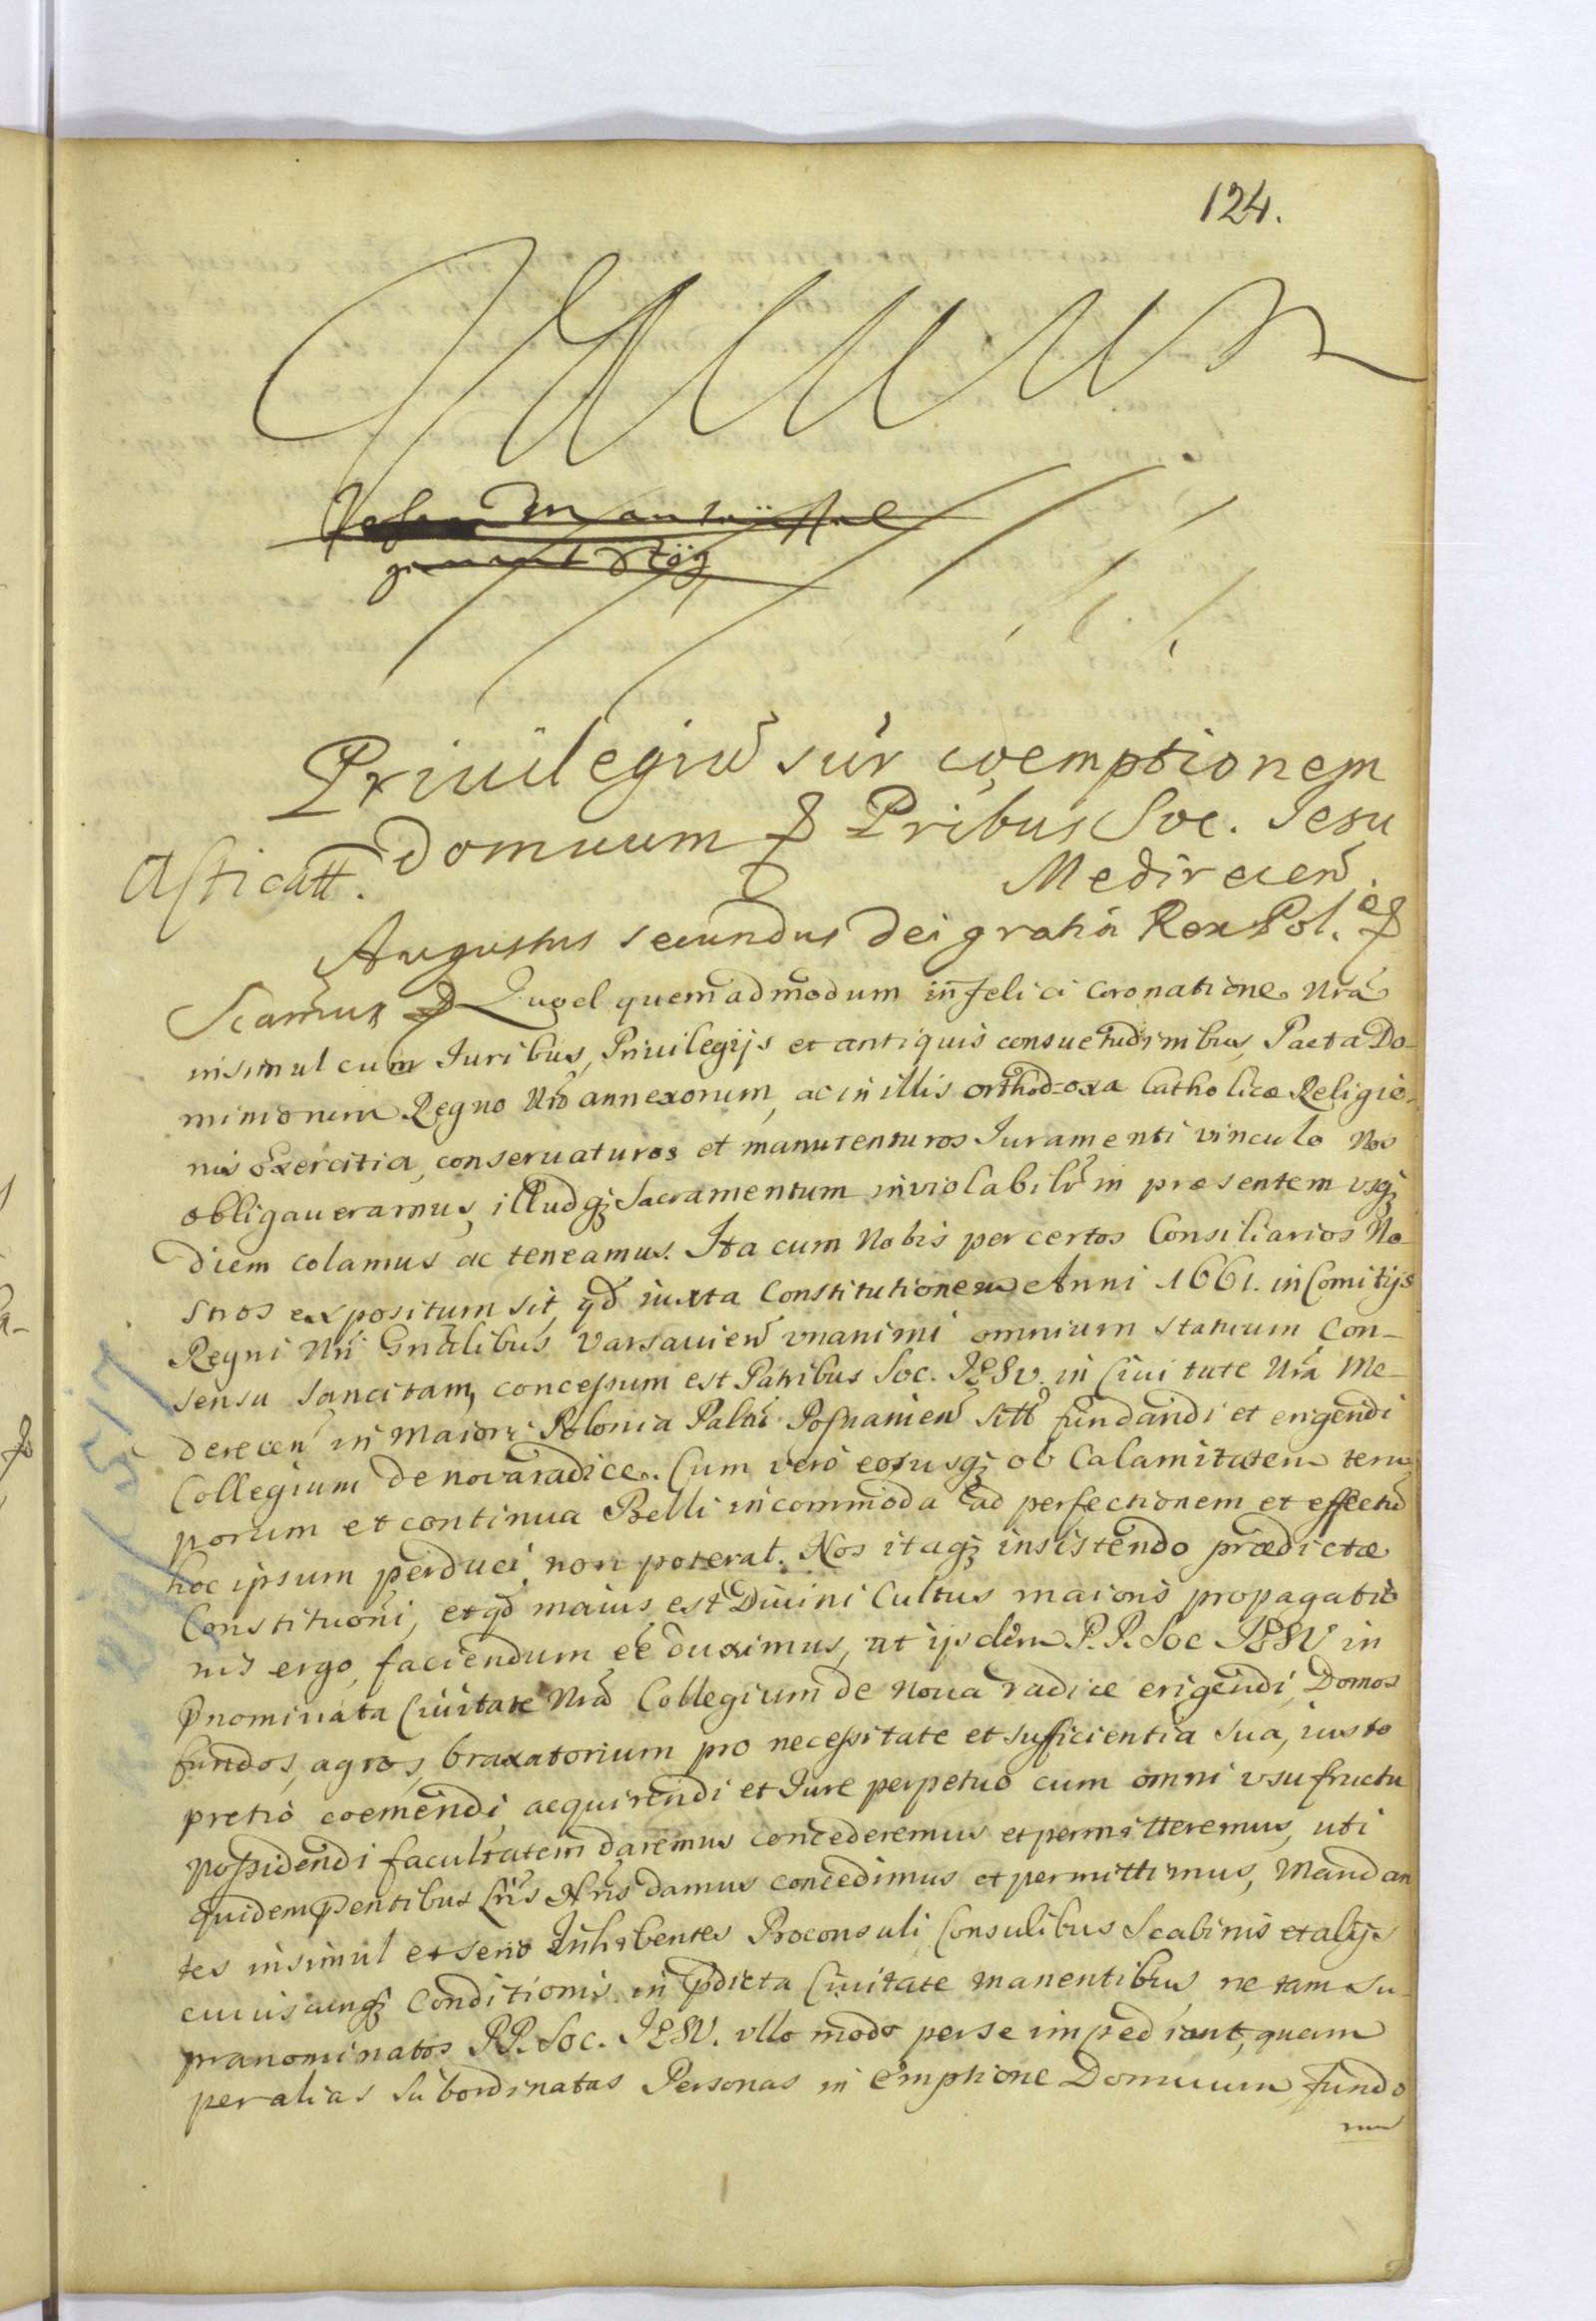 124.
Privilegiũ sup̃ coemptionem
Domuum p Pribus Soc. Jesu
Asticatt. Medirecen̄.
Augustus secundus Dei gratia Rex Pol. etc
quemadmodum in felici Coronatione Nra
insimul cum Juribus, Privilegijs et antiquis consuetudinibus, Pacta Do-
miniorum Regno Nro annexorum, ac in illis orthodoxa Catholicæ Religio-
nis Exercitia, conservaturos et manutenturos Juramenti vinculo Nos
obligaveramus, illudq; Sacramentum inviolabilr̃ in præsentem usq;
diem colamus ac teneamus. Ita cum Nobis per certos Consiliarios No-
stros expositum sit, qd iuxta Constitutionem Anni 1661. in Comitijs
Regni Nri Gnalibus Varsavien̄ unanimi omnium statuum Con-
sensu Sancitam, concessum est Patribus Soc. JESV. in Civitate Nra Me-
derecen̄ in Maiori Polonia Palnu Posnanien̄ sitt fundandi et erigendi
Collegium de nova radice. Cum vero eousq; ob Calamitatem tem
porum et continua Belli incommoda ad perfectionem et effectũ
hoc ipsum perduci non poterat. Nos itaq; insistendo prædictæ
Constituõni, et qd maius est Divini Cultus maioris propagatio
nis ergo, faciendum eẽ duximus, ut ijsdem P. P. Soc JESV in
p̃nominata Civitate Nra Collegium de nova radice erigendi, Domos
fundos, agros, braxatorium pro necessitate et sufficientia sua, iusto
pretio coemendi, acquirendi et Jure perpetuo cum omni usufructu
possidendi facultatem daremus concederemus et permitteremus, uti
quidem p̃sentibus Lris Nris damus concedimus et permittimus, Mandan
tes insimul et serio Inhibentes Proconsuli, Consulibus Scabinis et alijs
cuiuscunq; Conditionis in p̃dicta Civitate manentibus, ne tam su-
pranominatos PP. Soc. JESV. ullo modo per se impediant, quam
per alias subordinatas Personas in emptione Domuum, fundo
rum